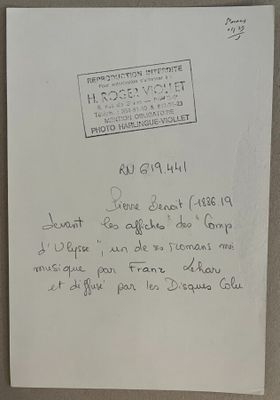 REPRODUCTION INTERDITE
H. ROGER VIOLLET
MENTION OBLIGATOIRE
PHOTO HARLINGUE-VIOLLET
RN 619.441
Pierre Benoit (1886.19
devant les affiches des "Comp.
d'Ulysse", un de ses romans mi
musique par Franz Lehar
et diffusé par les Disques Colu